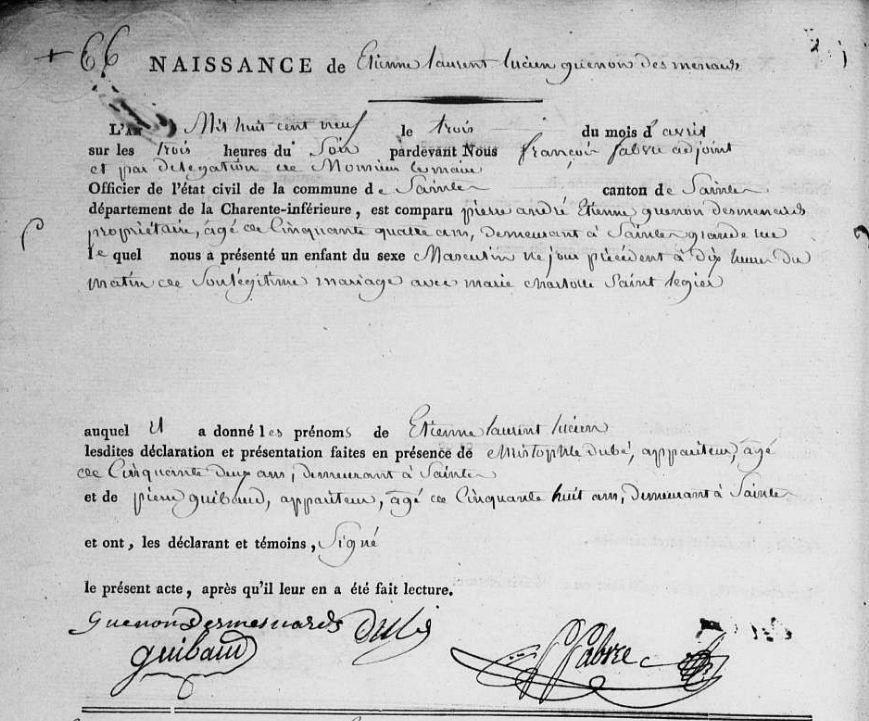 + 66 NAISSANCE de Etienne laurent lucien guenon des menards
L'AN Mil huit cent neuf le trois du mois d'avril
sur les trois heures du Soir pardevant Nous françois fabre adjoint
et par delegation de Monsieur le maire
Officier de l'état civil de la commune de Saintes canton de Saintes
département de la Charente-inférieure, est comparu pierre andré Etienne guenon desmenards
propriétaire, âgé de Cinquante quatre ans, demeurant à Saintes grande rue
le quel nous a présenté un enfant du sexe Masculin né jour précédent à dix heures du
matin de Son légitime mariage avec marie charlotte Saint legier
auquel il a donné les prénoms de Etienne laurent lucien
lesdites déclaration et présentation faites en présence de christophle dubé, appariteur, âgé
de Cinquante deux ans, demeurant à Saintes
et de pierre guibaud, appariteur, âgé de Cinquante huit ans, demeurant à Saintes
et ont, les déclarant et témoins, Signé
le présent acte, après qu'il leur en a été fait lecture.
Guenon Desmesnards Dubé
guibaud Fabre